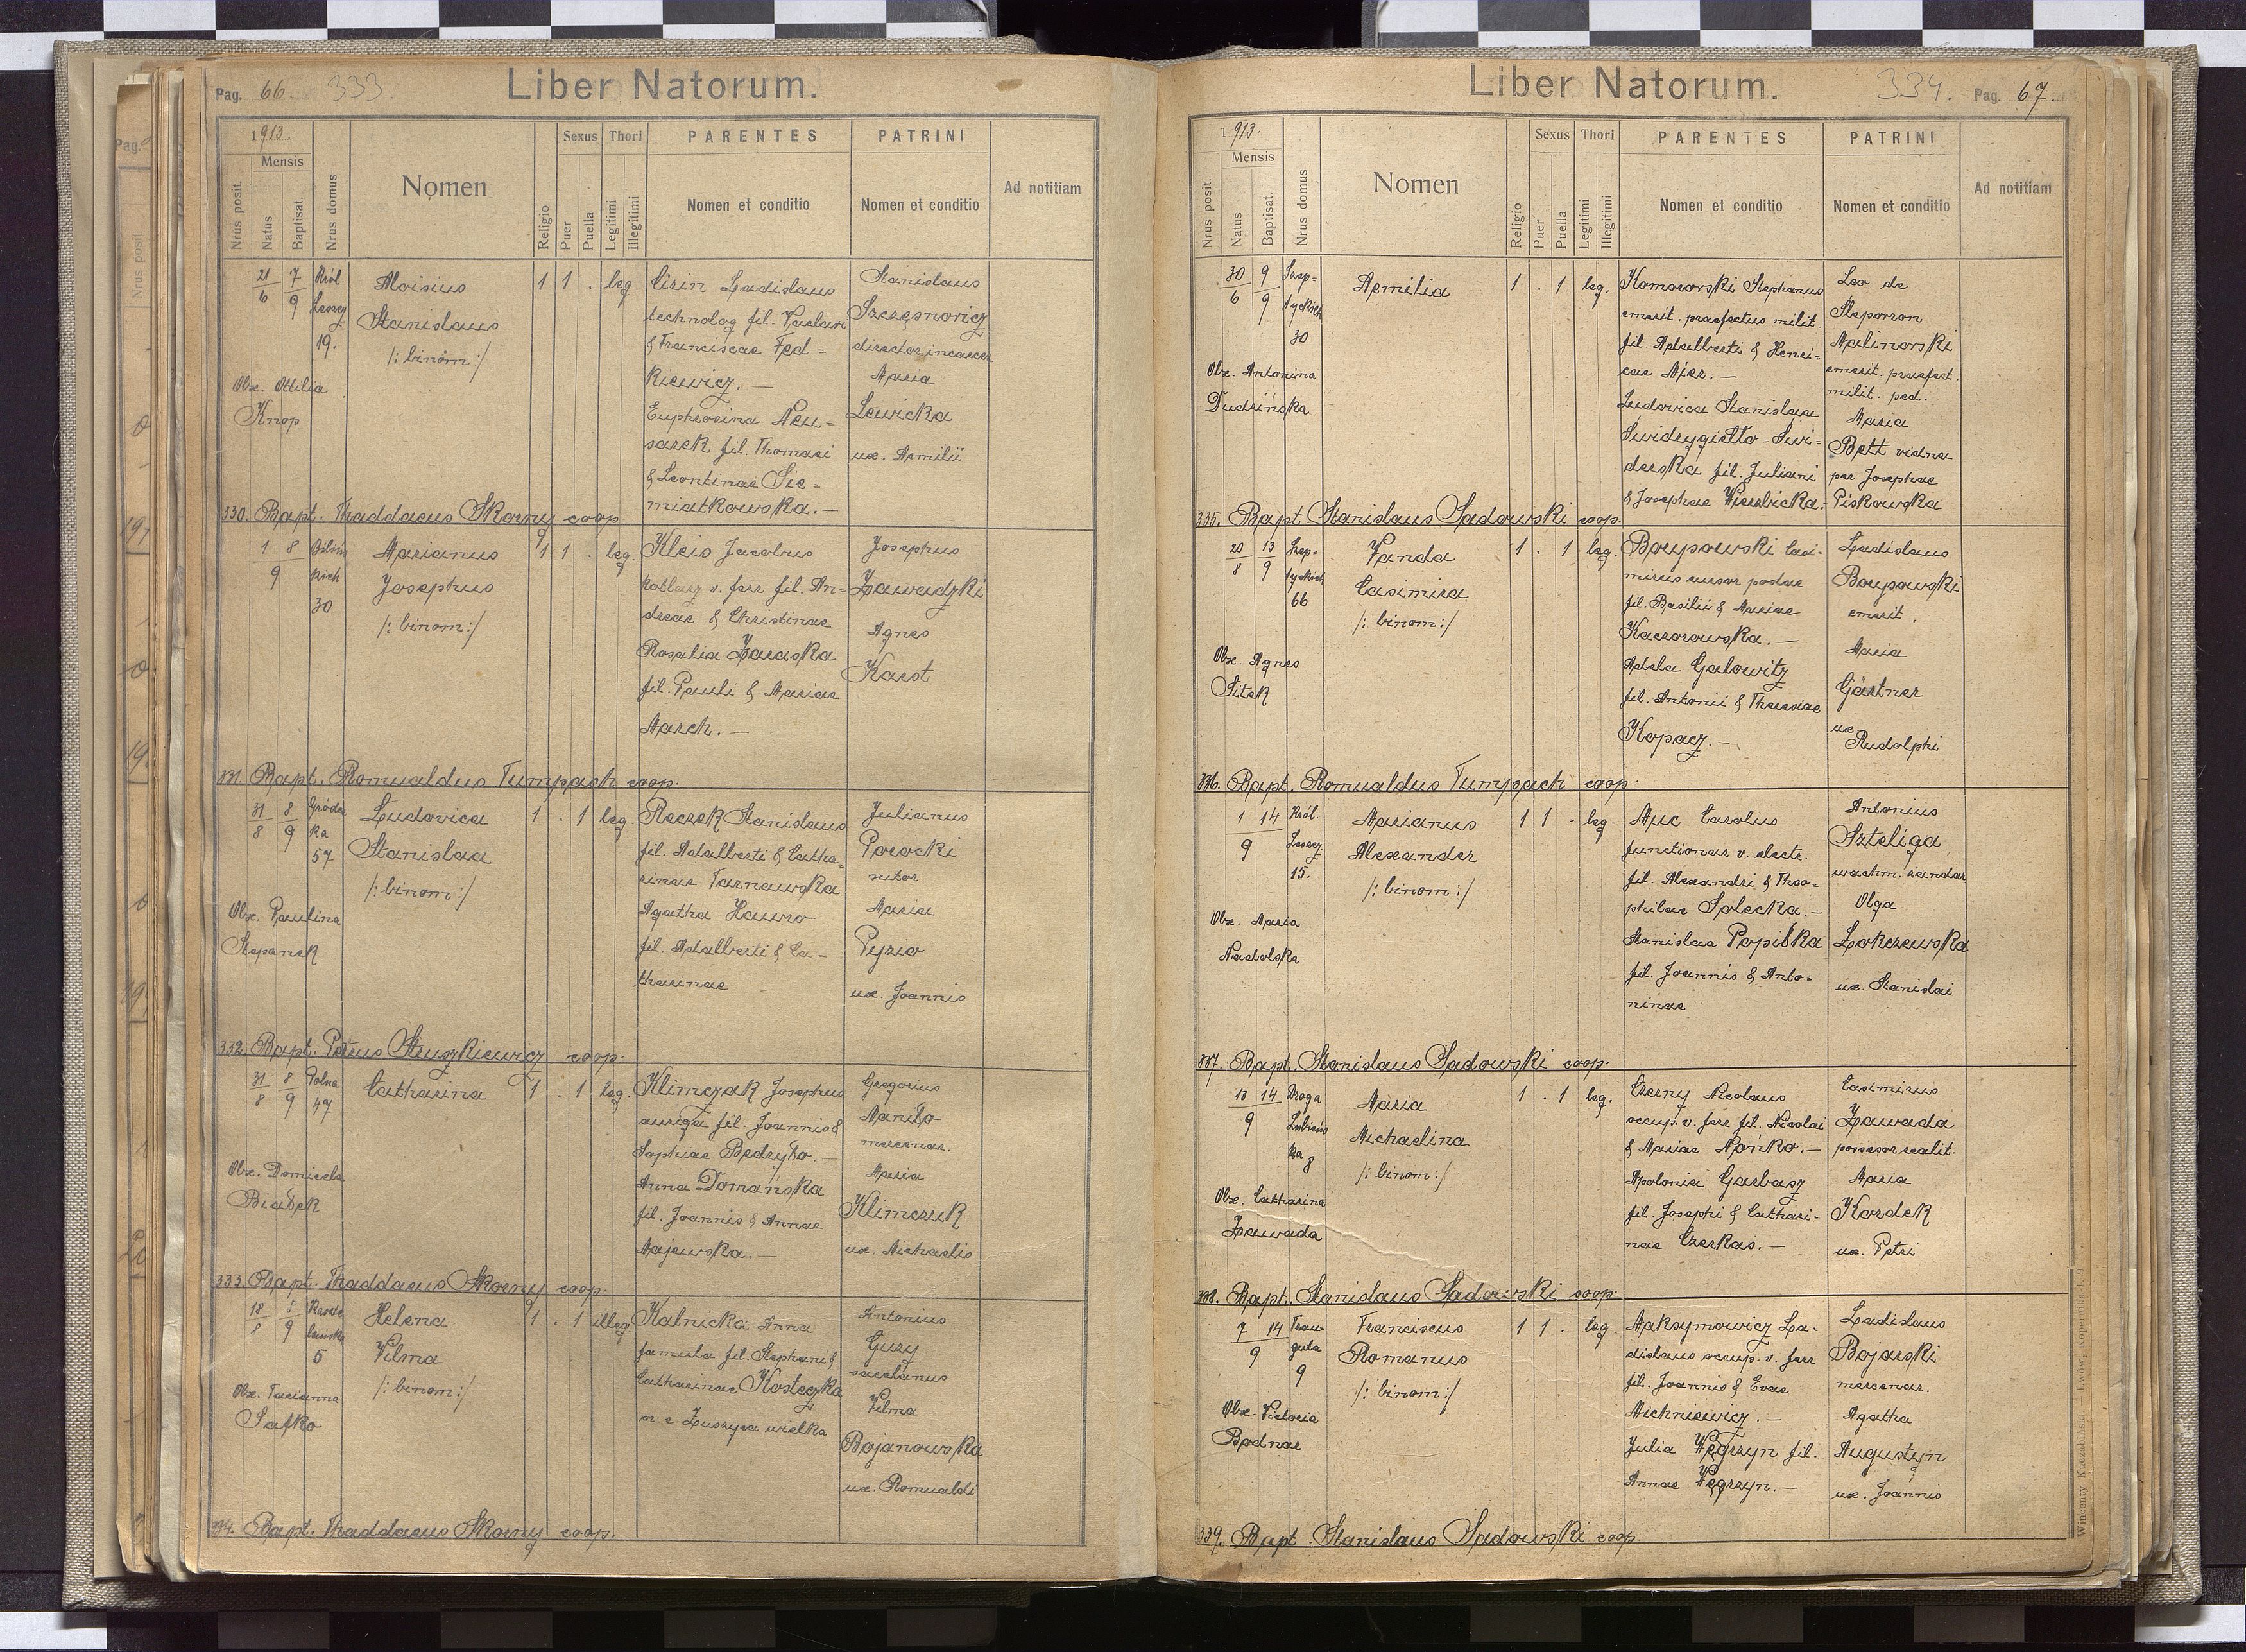 Pag. 66 333 Liber Natorum.
1913.
Nrus posit.
Mensis
Natus
Baptisat.
Nrus domus
Nomen
Religio
Sexus
Puer
Puella
Thori
Legitimi
Illegitimi
PARENTES
Nomen et conditio
PATRINI
Nomen et conditio
Ad notitiam
21/6 7/9
Król.
Leszcz.
19.
Aloisius
Stanislaus
/: binom :/
Obx. Ottilia
Knop
1 1 . leg.
Cizin Ladislaus
technolog fil. Venclavi
& Franciscae Fed-
kiewicz. —
Euphrosina Neu-
sarek fil. Thomasi
& Leontinae Sie-
miatkowska. —
Stanislaus
Szczęsnowicz
director in carcer
Maria
Lewicka
ux. Aemilii
330. Bapt. Thaddaeus Skorny coop.
1/9 8
Bilińs
kich
30
Marianus
Josephus
/: binom :/
1 1 . leg.
Kleis Jacobus
kotlarz v. ferr fil. An-
dreae & Christinae
Rosalia Zaraska
fil. Pauli & Mariae
March. —
Josephus
Zawadzki
Agnes
Karot
331. Bapt. Romualdus Tumpach coop.
31/8 8/9
Gródec
ka
57
Ludovica
Stanislaa
/: binom :/
Obx. Paulina
Stepanek
1 . 1 leg.
Reczek Stanislaus
fil. Adalberti & Catha-
rinae Tarnawska
Agatha Hawro
fil. Adalberti & Ca-
tharinae
Julianus
Porocki
sutor
Maria
Pyzio
ux. Joannis
332. Bapt. Petrus Struszkiewicz coop.
31/8 8/9
Polna
47
Catharina
Obx. Domicela
Białek
1 . 1 leg.
Klimczak Josephus
auriga fil. Joannis &
Sophiae Bedryło. —
Anna Domańska
fil. Joannis & Annae
Majewska. —
Gregorius
Maniło
mercenar.
Maria
Klimczuk
ux. Michaelis
333. Bapt. Thaddaeus Skorny coop.
18/8 8/9
5
Helena
Vilma
/: binom :/
Obx. Tacianna
Safko
1 . 1 illeg.
Kalnicka Anna
famula fil. Stephani &
Catharinae Kosteczka
n. e Łuszyca wielka
Antonius
Guzy
sacelanus
Vilma
Bojanowska
ux. Romualdi
334. Bapt. Thaddaeus Skorny coop.
Liber Natorum. 334. Pag. 67
1913.
Nrus posit.
Mensis
Natus
Baptisat.
Nrus domus
Nomen
Religio
Sexus
Puer
Puella
Thori
Legitimi
Illegitimi
PARENTES
Nomen et conditio
PATRINI
Nomen et conditio
Ad notitiam
30/6 9/9
Szep-
tyckich
30
Aemilia
Obx. Antonina
Dudzińska
1 . 1 leg.
Komorowski Stephanus
emerit. praefectus milit.
fil. Adalberti & Henri-
cae Mier. —
Ludovica Stanislaa
Swidrygiełło-Swi-
derska fil. Juliani
& Josephae Wierzbicka. -
Leo de
Steporron
Malinowski
emerit. praefect.
milit. ped.
Maria
Bett vidua
per Josephae
Piskowska
335. Bapt. Stanislaus Sadowski coop.
20/8 13/9
Szep-
tyckich
66
Vanda
Casimira
/: binom :/
Obx. Agnes
Sitek
1 . 1 leg.
Bourpowski Casi-
mirus cursor podae
fil. Basilii & Mariae
Kaczorowska. —
Adela Galowitz
fil. Antonii & Theresiae
Kopacz. —
Ladislaus
Bourpowski
emerit.
Maria
Gärtner
ux.
Rudolphi
336. Bapt. Romualdus Tumpach coop.
1/9 14
Król.
Leszcz.
15.
Marianus
Alexander
/: binom :/
Obx. Maria
Nadolska
1 1 . leg.
Muc Carolus
functionar v. electr.
fil. Alexandri & Theo-
philae Solecka. —
Stanislaa Popilka
fil. Joannis & Anto-
ninae
Antonius
Szteliga
wachm. żandar
Olga
Łokczewska
ux. Stanislai
337. Bapt. Stanislaus Sadowski coop.
13/9 14
Droga
Lubieńs
ka 8
Maria
Michaelina
/: binom :/
Obx. Catharina
Zawada
1 . 1 leg.
Czerny Nicolaus
occup. v. ferr fil. Nicolai
& Mariae Nońko. —
Apolonia Garbacz
fil. Josephi & Cathari-
nae Czerkas. —
Casimirus
Zawada
possesor realit.
Maria
Kordek
ux. Petri
338. Bapt. Stanislaus Sadowski coop.
7/9 14
Trau-
guta
9
Franciscus
Romanus
/: binom :/
Obx. Victoria
Bodnar
1 1 . leg.
Maksymowicz La-
dislaus occup. v. ferr
fil. Joannis & Evae
Michniewicz. —
Julia Węgrzyn fil.
Annae Węgrzyn. —
Ladislaus
Bojarski
mercenar.
Agatha
Augustyn
ux. Joannis
339. Bapt. Stanislaus Sadowski coop.